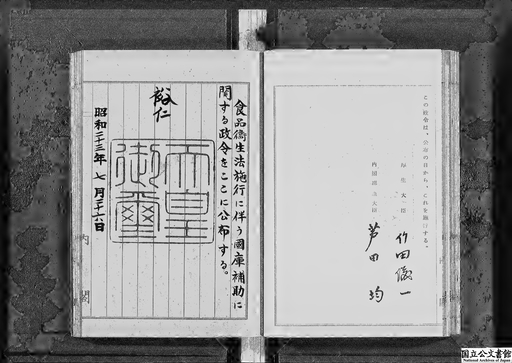 この政令は、公布の日から、これを施行する。
厚生大臣
竹田儀一
内閣総理大臣
芦田均
食品衛生法施行に伴う國庫補助に
関する政令をここに公布する。
裕仁
天皇
御璽
昭和二十三年七月二十六日
内閣
国立公文書館
National Archives of Japan